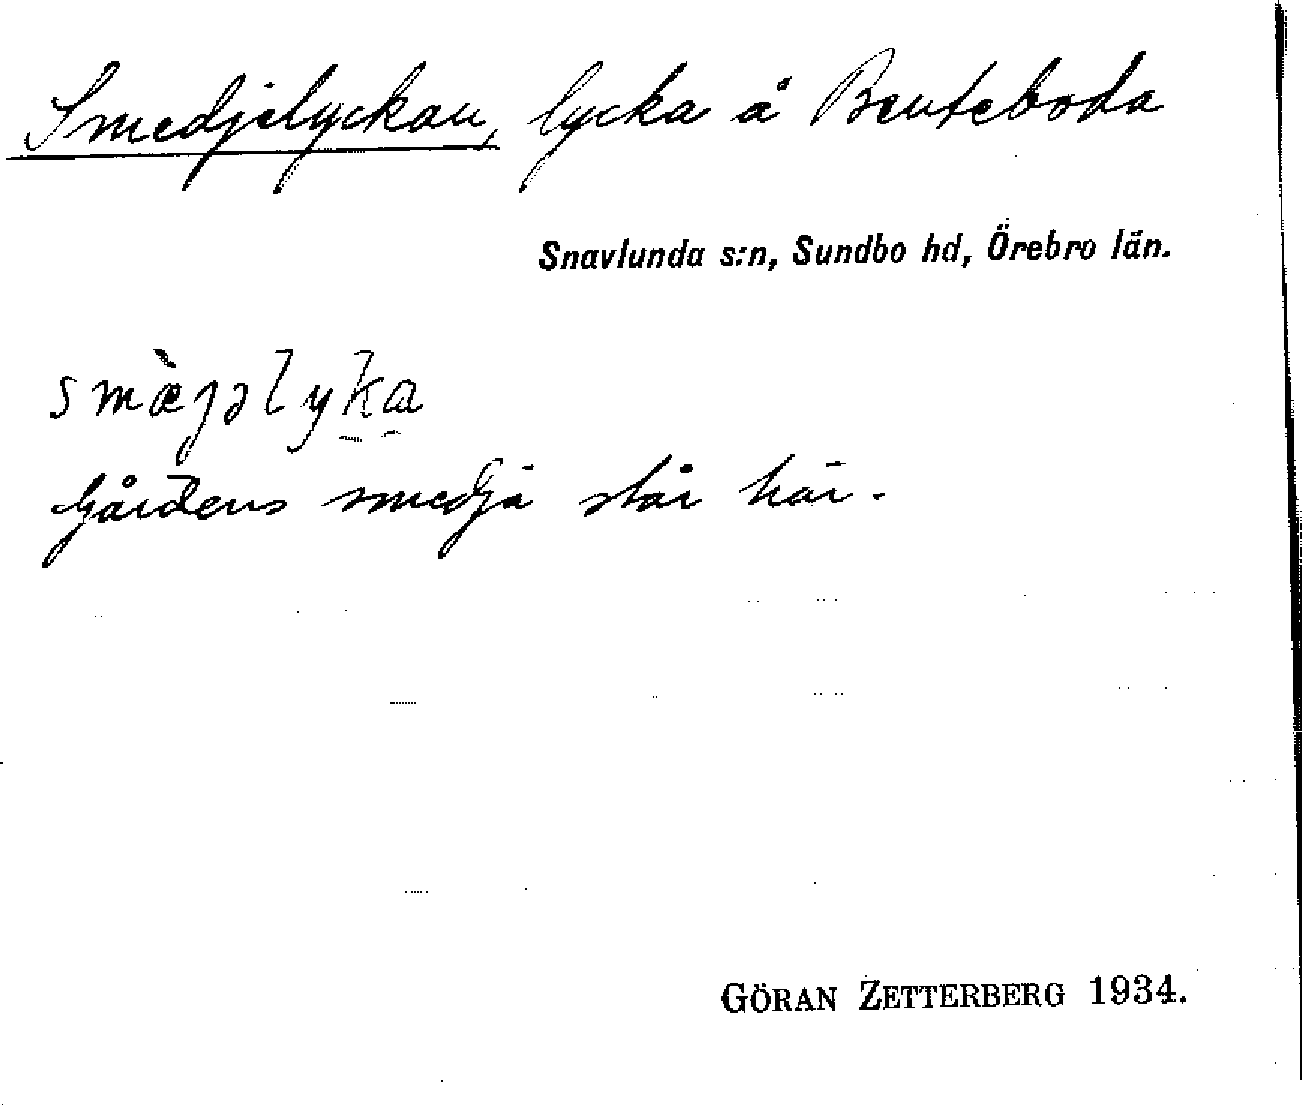 Smedjelyckan, lycka å Benteboda
Snavlunda s:n, Sundbo hd, Örebro län.
smæ̀jəlyka
Gårdens smedja står här.
GÖRAN ZETTERBERG 1934.